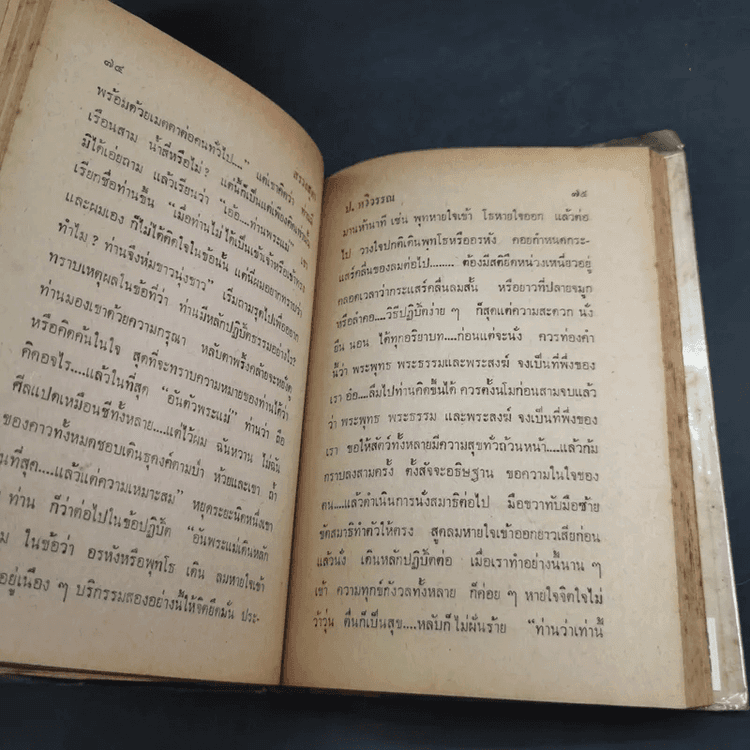 ๗๔
พร้อมด้วยเมตตาต่อคนทั่วไป...." แต่เขาคิดว่า
เรือนสาม น้ำสี่หรือไม่? แต่นี้ก็เป็นแต่เพียงคิด
มิได้เอ่ยถาม แล้วเรียนว่า "เอ้อ....ท่านพระแม่" เขา
เรียกชื่อท่านขึ้น "เมื่อท่านไม่ได้เป็นเข้าเจ้าหรือเข้าทรง
และผมเอง ก็ไม่ได้คิดใจในข้อนั้น แต่นี่ผมอยากทราบว่า
ทำไม? ท่านจึงห่มขาวนุ่งขาว" เริ่มถามรุดไปเพื่ออยาก
ทราบเหตุผลในข้อที่ว่า ท่านมีหลักปฏิบัติธรรมอย่างไร?
ท่านมองเขาด้วยความกรุณา หลับตาพริ้งคล้ายจะหยั่งดู
หรือคิดค้นในใจ สุดที่จะทราบความหมายของท่านได้ว่า
คิดอะไร....แล้วในที่สุด "อันตัวพระแม่" ท่านว่า ถือ
ศีลแปดเหมือนชีทั้งหลาย....แต่ไว้ผม ฉันหวาน ไม่ฉัน
ของคาวทั้งหมดชอบเดินธุดงค์ตามป่า ห้วยและเขา ถ้ำ
นที่สุด....แล้วแต่ความเหมาะสม" หยุดระยะนิดหนึ่งเขา
ท่าน ก็ว่าต่อไปในข้อปฏิบัติ "อันพระแม่เดินหลัก
ม ในข้อว่า อรหังหรือพุทโธ เดิน ลมหายใจเข้า
อยู่เนือง ๆ บริกรรมสองอย่างนี้ให้จิตยึดมั่น ประ-
ป. ทวีวรรณ ๗๕
มานห้านาที เช่น พุทหายใจเข้า โธหายใจออก แล้วต่อ
ไป วางใจปกติเดินพุทโธหรืออรหัง คอยกำหนดกระ-
แสร์คลื่นของลมต่อไป........ ต้องมีสติยึดหน่วงเหนี่ยวอยู่
ตลอดเวลาว่ากระแสร์คลื่นลมสั้น หรือยาวที่ปลายจมูก
หรือลำคอ....วิธีปฏิบัติง่าย ๆ ก็สุดแต่ความสะดวก นั่ง
ยืน นอน ได้ทุกอริยาบท....ก่อนแต่จะนั่ง ควรท่องคำ
นี้ว่า พระพุทธ พระธรรมและพระสงฆ์ จงเป็นที่พึ่งของ
เรา อ้อ....ลืมไปท่านคิดขึ้นได้ ควรตั้งนโมก่อนสามจบแล้ว
ว่า พระพุทธ พระธรรม และพระสงฆ์ จงเป็นที่พึ่งของ
เรา ขอให้สัตว์ทั้งหลายมีความสุขทั่วถ้วนหน้า....แล้วก้ม
กราบลงสามครั้ง ตั้งสัจจะอธิษฐาน ขอความในใจของ
ตน....แล้วดำเนินการนั่งสมาธิต่อไป มือขวาทับมือซ้าย
ขัดสมาธิทำตัวให้ตรง สูดลมหายใจเข้าออกยาวเสียก่อน
แล้วนั่ง เดินหลักปฏิบัติต่อ เมื่อเราทำอย่างนี้นาน ๆ
เข้า ความทุกข์กังวลทั้งหลาย ก็ค่อย ๆ หายใจจิตใจไม่
ว้าวุ่น ตื่นก็เป็นสุข....หลับก็ไม่ฝันร้าย "ท่านว่าเท่านี้